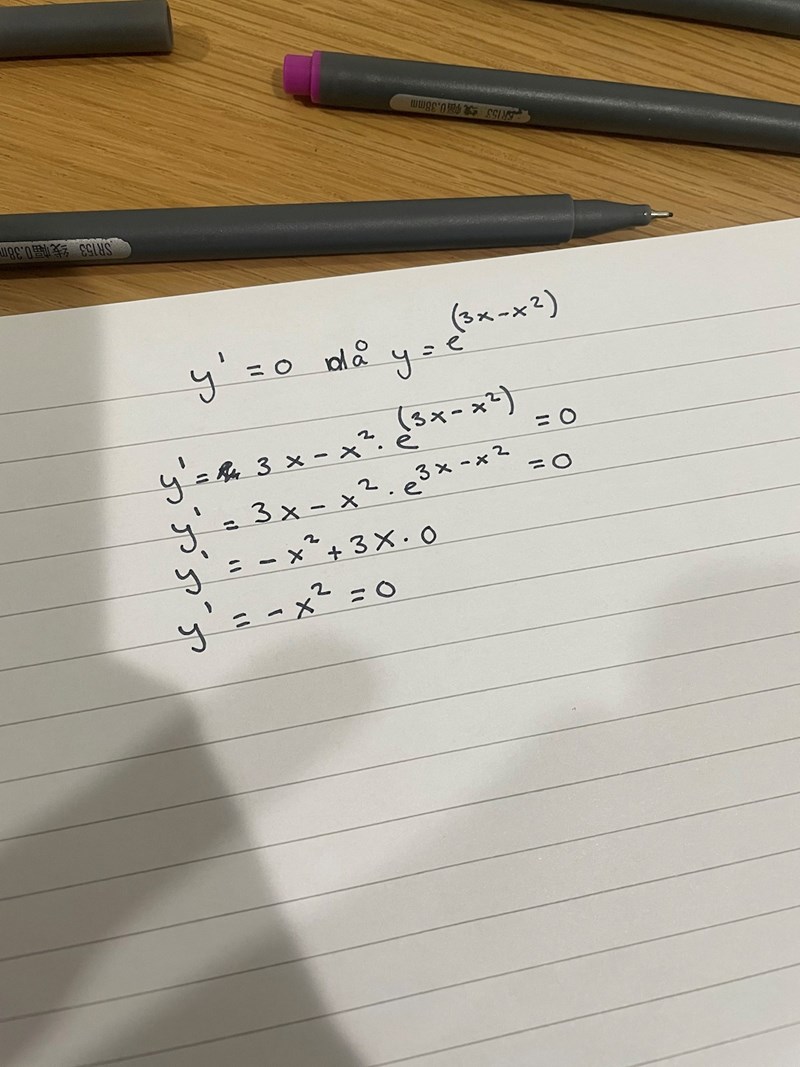 SR153 线幅0.38mm
SR153 线幅0.38m
y' = 0 då y = e^(3x-x²)
y' = 3x - x² · e^(3x-x²) = 0
y' = 3x - x² · e^3x-x² = 0
y' = -x² + 3x · 0
y' = -x² = 0